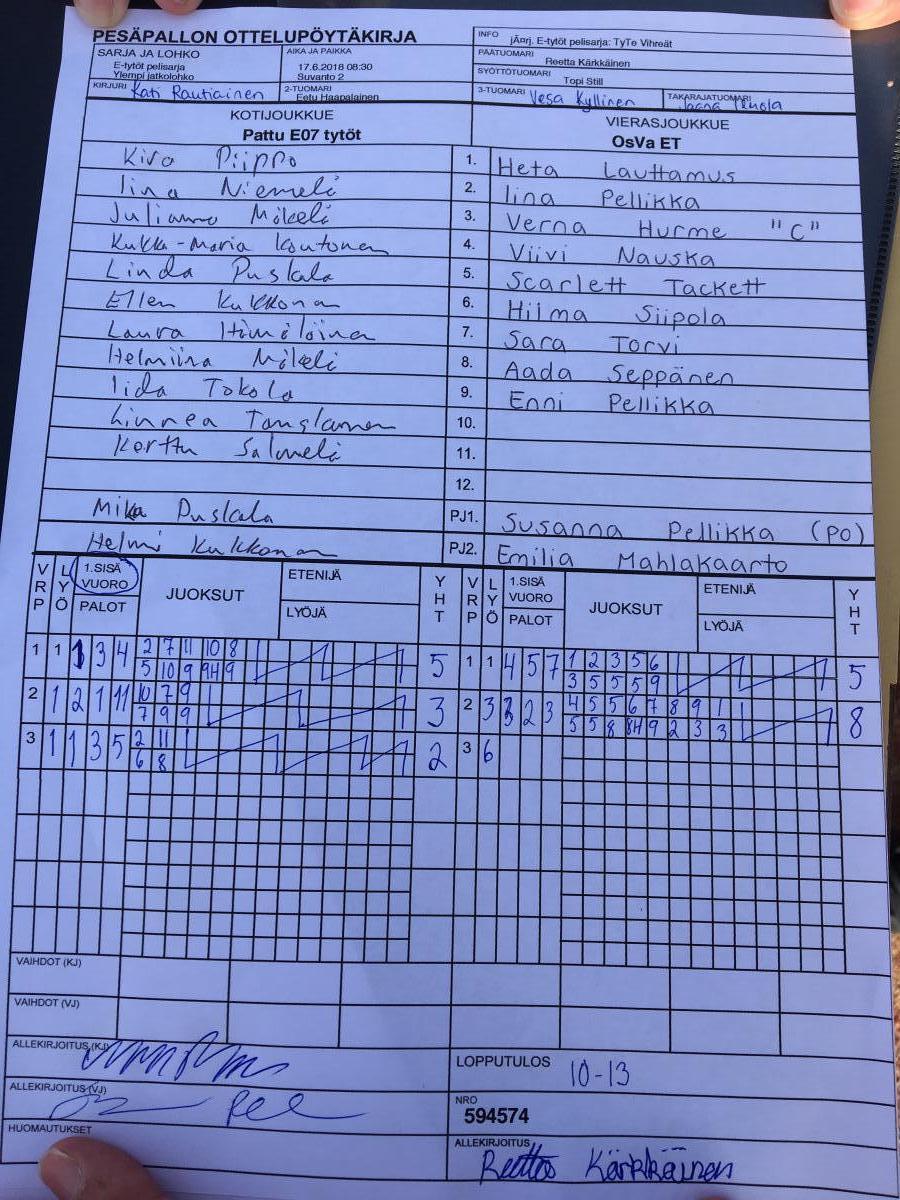 PESÄPALLON OTTELUPÖYTÄKIRJA
INFO jÄnrj. E-tytöt pelisarja: TyTe Vihreät
SARJA JA LOHKO
E-tytöt pelisarja
Ylempi jatkolohko
AIKA JA PAIKKA
17.6.2018 08:30
Suvanto 2
PÄÄTUOMARI Reetta Kärkkäinen
SYÖTTÖTUOMARI Topi Still
KIRJURI Kati Rautiainen
2-TUOMARI Eetu Haapalainen
3-TUOMARI Vesa Kyllinen
TAKARAJATUOMARI
KOTIJOUKKUE
Pattu E07 tytöt
VIERASJOUKKUE
OsVa ET
Kira Piippo 1. Heta Lauttamus
Iina Niemelä 2. Iina Pellikka
Julianna Mäkelä 3. Verna Hurme "C"
Kukka-Maria Koutonen 4. Viivi Nauska
Linda Puskala 5. Scarlett Tackett
Ellen Kukkonen 6. Hilma Siipola
Laura 7. Sara Torvi
Helmiina Mäkelä 8. Aada Seppänen
Iida Tokola 9. Enni Pellikka
Linnea 10.
Kerttu Salmelä 11.
12.
Mika Puskala PJ1. Susanna Pellikka (PO)
Helmi Kukkonen PJ2. Emilia Mahlakaarto
VRP LYÖ 1.SISÄ VUORO PALOT JUOKSUT ETENIJÄ LYÖJÄ YHT VRP LYÖ 1.SISÄ VUORO PALOT JUOKSUT ETENIJÄ LYÖJÄ YHT
1 1 1 3 4 2 7 11 10 8 5 1 1 4 5 7 1 2 3 5 6 5
5 10 9 9 3 5 5 5 9
2 1 2 1 11 10 7 9 3 2 3 3 2 3 4 5 5 6 7 8 9 1 8
7 9 9 5 5 8 9 2 3 3
3 1 1 3 5 2 11 2 3 6
6 8
VAIHDOT (KJ)
VAIHDOT (VJ)
ALLEKIRJOITUS (KJ)
LOPPUTULOS 10-13
ALLEKIRJOITUS (VJ)
NRO
594574
HUOMAUTUKSET
ALLEKIRJOITUS
Reetta Kärkkäinen